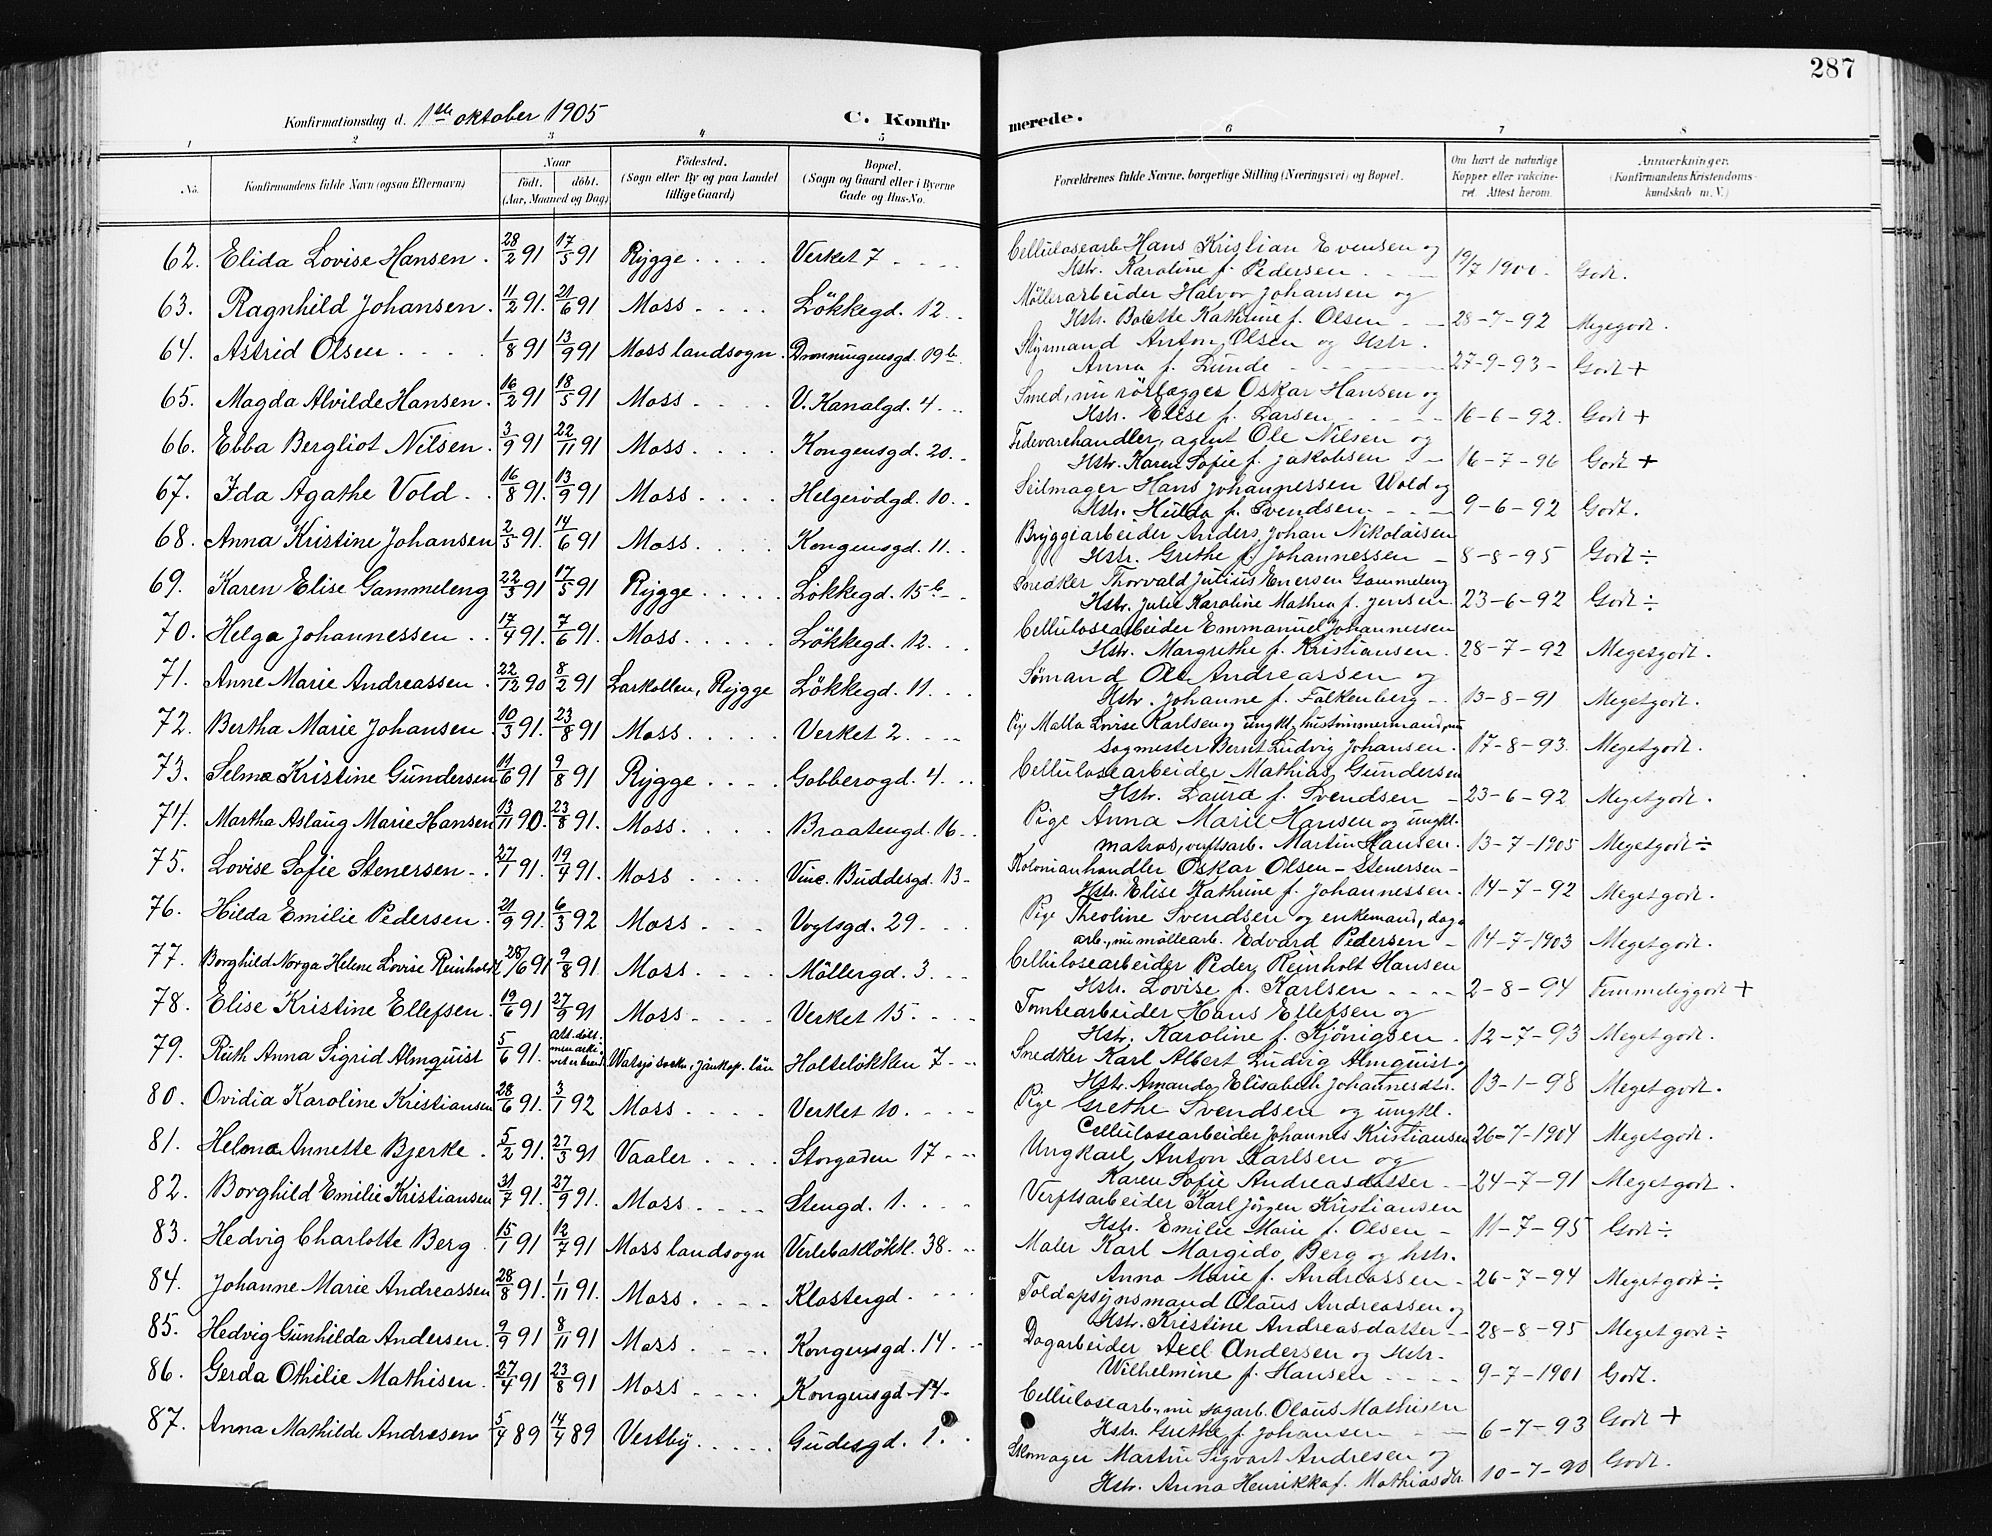 287
Konfirmationsdag d. 1ste oktober 1905
C. Konfirmerede.
1 2 3 4 5 6 7 8
No.
Konfirmandens fulde Navn (ogsaa Efternavn)
Naar
født. døbt.
(Aar, Maaned og Dag)
Födested.
(Sogn eller By og paa Landet
tillige Gaard)
Bopæl.
(Sogn og Gaard eller i Byerne
Gade og Hus-No.
Forældrenes fulde Navne, borgerlige Stilling (Næringsvei) og Bopæl.
Om havt de naturlige
Kopper eller vakcine-
ret. Attest herom.
Anmærkninger.
(Konfirmandens Kristendoms-
kundskab m. V.)
62. Elida Lovise Hansen. 28/2 91 17/5 91 Rygge Verket 7 Cellulosearb. Hans Kristian Evensen og
Hstr. Karoline f. Pedersen 19/7 1900. Godt.
63. Ragnhild Johansen. 11/2 91. 21/6 91 Moss Løkkegd. 12 Møllerarbeider Halvor Johansen og
Hstr. Bolette Kathrine f. Olsen 28-7-92 Megegodt.
64. Astrid Olsen 1/8 91 13/9 91 Moss landsogn. Dronningensgd. 19b Styrmand Anton Olsen og Hstr.
Anna f. Lunde 27-9-93 Godt +
65. Magda Alvilde Hansen. 16/2 91 18/5 91 Moss V. Kanalgd. 4 Smed, nu rörlægger Oskar Hansen og
Hstr. Elise f. Larsen 16-6-92. Godt +
66. Ebba Bergliot Nilsen. 3/9 91 22/11 91 Moss Kongensgd. 20 Fedevarehandler, agent Ole Nilsen og
Hstr. Karen Sofie f. Jakobsen 16-7-96 Godt +
67. Ida Agathe Vold 16/8 91. 13/9 91 Moss Helgerödgd. 10 Seilmager Hans Johannessen Wold og
Hstr. Hulda f. Svendsen 9-6-92 Godt.
68. Anna Kristine Johansen 2/5 91. 14/6 91 Moss Kongensgd. 11 Bryggearbeider Anders Johan Nikolaisen
Hstr. Grethe f. Johannessen 8-8-95 Godt ÷
69. Karen Elise Gammeleng 22/3 91 17/5 91 Rygge Løkkegd. 15b Snedker Thorvald Julius Enersen Gammeleng
Hstr. Julie Karoline Mathea f. Jensen 23-6-92 Godt ÷
70. Helga Johannessen 17/4 91. 7/6 91. Moss Løkkegd. 12 Cellulosearbeider Emmanuel Johannessen
Hstr. Margrethe f. Kristiansen 28-7-92 Megetgodt.
71. Anne Marie Andreassen 22/12 90 8/2 91 Larkollen, Rygge Løkkegd. 11 Sømand Ole Andreassen og
Hstr. Johanne f. Falkenberg 13-8-91 Megetgodt.
72. Bertha Marie Johansen 10/3 91. 23/8 91 Moss Verket 2 Pig. Malla Lovise Karlsen og ungkl. hustømmermand, nu
sagmester Bernt Ludvig Johansen. 17-8-93. Megetgodt.
73. Selma Kristine Gundersen 11/6 91 9/8 91 Rygge Gobberogd. 4 Cellulosearbeider Mathias Gundersen
Hstr. Laura f. Svendsen 23-6-92 Megetgodt.
74. Martha Aslaug Marie Hansen 13/11 90. 23/8 91. Moss Braatengd. 16 Pige Anna Marie Hansen og ungkl.
matros, verftsarb. Martin Hansen. 13-7-1905 Megetgodt ÷
75. Lovise Sofie Stenersen 27/1 91. 19/4 91. Moss Vinc. Buddesgd. 13 Kolonialhandler Oskar Olsen-Stenersen
Hstr. Elise Kathrine f. Johannessen. 14-7-92 Megetgodt.
76. Hilda Emilie Pedersen 21/9 91. 6/3 92 Moss Vogtsgd. 29 Pige Theoline Svendsen og enkemand, dag-
arb., nu møllearb. Edvard Pedersen 14-7-1903 Megetgodt.
77. Borghild Norga Helene Lovise Reinholdt 28/6 91 9/8 91 Moss Möllergd. 3 Cellulosearbeider Peder Reinholt Hansen
Hstr. Lovise f. Karlsen 2-8-94 Temmeliggodt +
78. Elise Kristine Ellefsen. 19/6 91 27/9 91 Moss Verket 15 Tomtearbeider Hans Ellefsen og
Hstr. Karoline f. Kjönigsen 12-7-93 Megetgodt.
79. Ruth Anna Sigrid Almquist 5/6 91. Watsjö Jönkøp. län Holteløkken 7 Snedker Karl Albert Ludvig Almquist og
Hstr. Amanda Elisabeth Johannesdtr. 13-1-98 Megetgodt.
80. Ovidia Karoline Kristiansen 28/6 91. 3/1 92 Moss Verket 10 Pige Grethe Svendsen og ungkl.
Cellulosearbeider Johannes Kristiansen 26-7-1904 Megetgodt.
81. Helma Annette Bjerke 5/2 91. 27/3 91 Vaaler Storgaden 17 Ungkarl Anton Karlsen og
Karen Sofie Andreasdatter 24-7-91 Megetgodt.
82. Borghild Emilie Kristiansen 31/7 91. 27/9 91. Moss Stengd. 1 Verftsarbeider Karl Jörgen Kristiansen
Hstr. Emilie Marie f. Olsen 11-7-95 Godt ÷
83. Hedvig Charlotte Berg 15/1 91 12/7 91 Moss landsogn 38 Maler Karl Margido Berg og hstr.
Anna Marie f. Andreassen 26-7-94 Megetgodt ÷
84. Johanne Marie Andreassen 28/8 91. 1/11 91. Moss Klostergd. Toldopsynsmand Olaus Andreassen og
Hstr. Kristine Andreasdatter 28-8-95 Megetgodt ÷
85. Hedvig Gunhilda Andersen 9/9 91 8/11 91 Moss Kongensgd. 14 Dagarbeider Axel Andersen og Hstr.
Wilhelmine f. Hansen 9-7-1901 Godt.
86. Gerda Othilie Mathisen 27/4 91 23/8 91 Moss Kongensgd. 14 Cellulosearb., nu sagarb. Olaus Mathisen
Hstr. Grethe f. Johansen 6-7-93 Godt +
87. Anna Mathilde Andresen 5/4 89 14/4 89 Vestby Gudesgd. 1 Skomager Martin Sigvart Andresen og
Hstr. Anna Henrikka f. Mathiasdtr. 10-7-90 Godt.